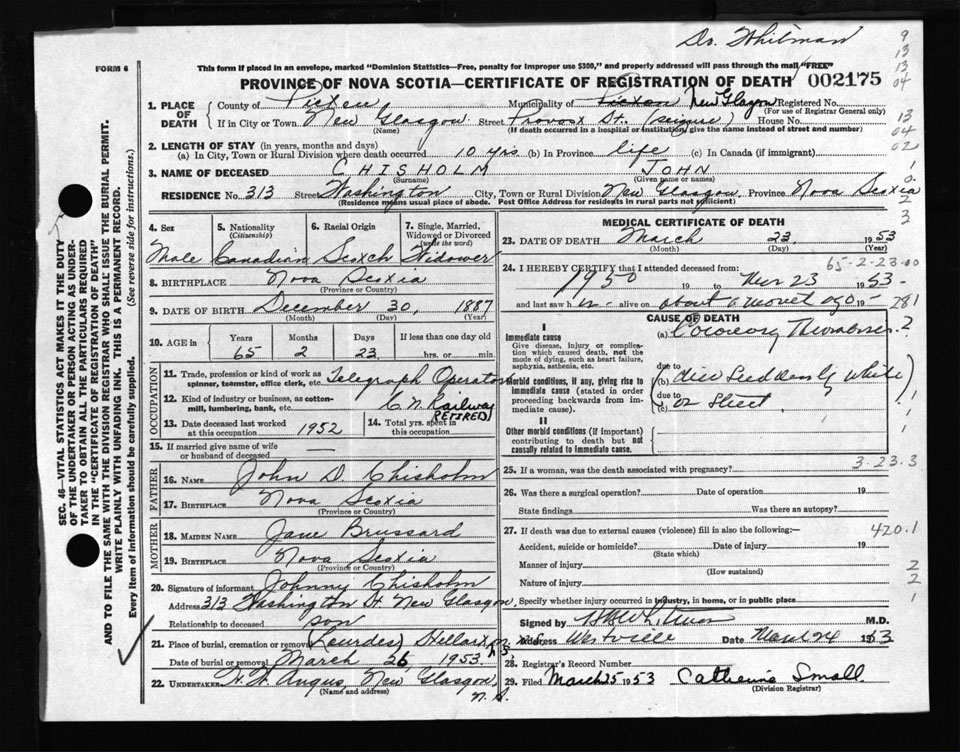 Dr. Whitman
FORM 6
This form if placed in an envelope, marked "Dominion Statistics—Free, penalty for improper use $300," and properly addressed will pass through the mail "FREE"
PROVINCE OF NOVA SCOTIA—CERTIFICATE OF REGISTRATION OF DEATH 002175
9
13
13
04
13
04
02
1
0
2
3
1. PLACE OF DEATH
County of Pictou Municipality of Pictou New Glasgow Registered No.
(For use of Registrar General only)
If in City or Town New Glasgow Street Provost St. (seizure) House No.
(Name) (If death occurred in a hospital or institution, give the name instead of street and number)
2. LENGTH OF STAY (in years, months and days)
(a) In City, Town or Rural Division where death occurred 10 yrs (b) In Province life (c) In Canada (if immigrant)
3. NAME OF DECEASED CHISHOLM JOHN
(Surname) (Given name or names)
RESIDENCE No. 313 Street Washington City, Town or Rural Division New Glasgow Province Nova Scotia
(Residence means usual place of abode. Post Office Address for residents in rural parts not sufficient)
4. Sex 5. Nationality (Citizenship) 6. Racial Origin 7. Single, Married, Widowed or Divorced (write the word)
Male Canadian Scotch Widower
8. BIRTHPLACE Nova Scotia
(Province or Country)
9. DATE OF BIRTH December 30, 1887
(Month) (Day) (Year)
10. AGE in Years Months Days If less than one day old
65 2 23 hrs. or min.
OCCUPATION
11. Trade, profession or kind of work as spinner, teamster, office clerk, etc. Telegraph Operator
12. Kind of industry or business, as cotton-mill, lumbering, bank, etc. C.N. Railway
(RETIRED)
13. Date deceased last worked at this occupation 1952 14. Total yrs. spent in this occupation
15. If married give name of wife or husband of deceased —
FATHER
16. NAME John D. Chisholm
17. BIRTHPLACE Nova Scotia
(Province or Country)
MOTHER
18. MAIDEN NAME Jane Brussard
19. BIRTHPLACE Nova Scotia
(Province or Country)
20. Signature of informant Johnny Chisholm
Address 313 Washington St New Glasgow,
Relationship to deceased son
21. Place of burial, cremation or removal (Lourdes) Stellarton, N.S.
Date of burial or removal March 26, 1953
22. UNDERTAKER H. W. Angus, New Glasgow, N.S.
(Name and address)
MEDICAL CERTIFICATE OF DEATH
23. DATE OF DEATH March 23, 1953
(Month) (Day) (Year)
65-2-23-00
24. I HEREBY CERTIFY that I attended deceased from:
1950 19 to Mar 23 1953
and last saw h im alive on about a month ago 19
281
CAUSE OF DEATH
I
Immediate cause
Give disease, injury or complication which caused death, not the mode of dying, such as heart failure, asphyxia, asthenia, etc.
(a) Coronary Thrombosis 2
due to
Morbid conditions, if any, giving rise to immediate cause (stated in order proceeding backwards from immediate cause).
(b) died suddenly while
due to
(c) on street
1
1
II
Other morbid conditions (if important) contributing to death but not causally related to immediate cause.
1
25. If a woman, was the death associated with pregnancy? 3-23.3
26. Was there a surgical operation? Date of operation 19
State findings Was there an autopsy?
27. If death was due to external causes (violence) fill in also the following:— 420.1
Accident, suicide or homicide? Date of injury 19
(State which)
Manner of injury 2
(How sustained)
Nature of injury 2
Specify whether injury occurred in industry, in home, or in public place 1
Signed by Whitman M.D.
Address Westville Date March 24 1953
28. Registrar's Record Number
29. Filed March 25 1953 Catherine Small
(Division Registrar)
SEC. 46—VITAL STATISTICS ACT MAKES IT THE DUTY
OF THE UNDERTAKER OR PERSON ACTING AS UNDER-
TAKER TO OBTAIN ALL THE PARTICULARS REQUIRED
IN THE "CERTIFICATE OF REGISTRATION OF DEATH"
AND TO FILE THE SAME WITH THE DIVISION REGISTRAR WHO SHALL ISSUE THE BURIAL PERMIT.
WRITE PLAINLY WITH UNFADING INK. THIS IS A PERMANENT RECORD.
Every item of information should be carefully supplied. (See reverse side for instructions.)